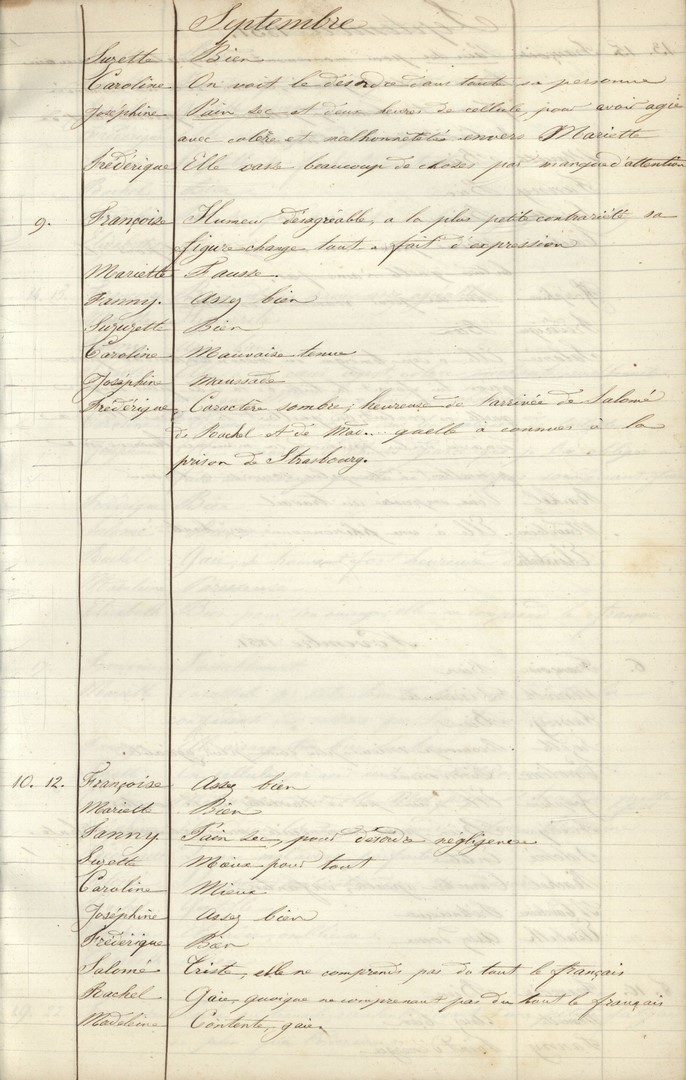 Septembre
Suzette Bien
Caroline On voit le désordre dans toute sa personne
Joséphine Pain sec et deux heures de cellule, pour avoir agie
avec colère et malhonnêtetés envers Mariette
Frédérique Elle casse beaucoup de choses par manque d'attention
9. Françoise Humeur désagréable, a la plus petite contrariété sa
figure change tout a fait d'expression
Mariette Fausse.
Fanny. Assez bien
Suzuzette Bien
Caroline Mauvaise tenue
Joséphine Maussade
Frédérique, Caractère sombre; heureuse de l'arrivée de Salomé
de Rachel et de Mad... quelle à connues à la
prison de Strasbourg.
10. 12. Françoise Assez bien
Mariette Bien
Fanny Pain sec, pour désordre négligence
Suzette pour tout
Caroline Mieux
Joséphine Assez bien
Frédérique Bien
Salomé Triste, elle ne comprends pas du tout le français
Rachel Gaie, quoique ne comprenant pas du tout le français
Madeleine Contente, gaie.